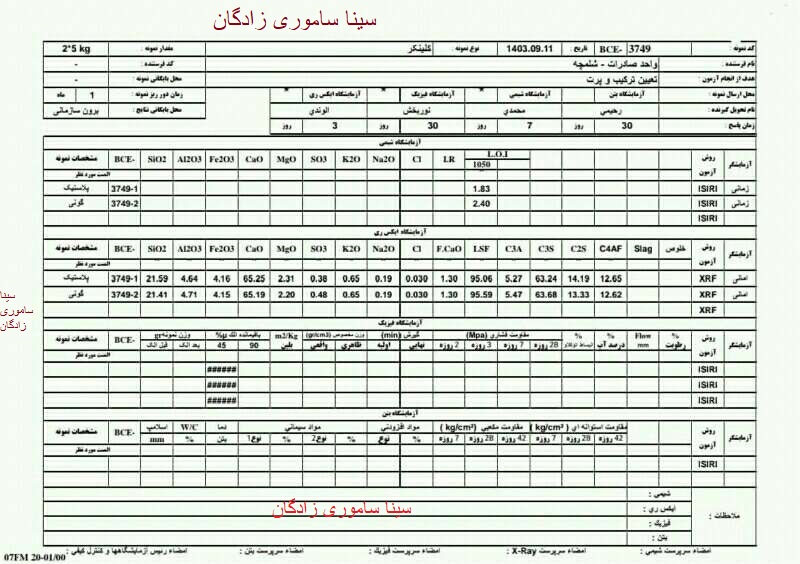 سینا ساموری زادگان
کد نمونه : BCE- 3749 تاریخ : 1403.09.11 نوع نمونه : کلینکر مقدار نمونه : 2*5 kg
نام فرستنده : واحد صادرات - شلمچه کد فرستنده : -
هدف از انجام آزمون : تعیین ترکیب و پرت محل بایگانی نمونه : -
محل ارسال نمونه : آزمایشگاه بتن آزمایشگاه شیمی * آزمایشگاه فیزیک * آزمایشگاه ایکس ری * زمان دور ریز نمونه : 1 ماه
نام تحویل گیرنده : رحیمی محمدی نوربخش الوندی محل بایگانی نتایج : برون سازمانی
زمان پاسخ : 30 روز 7 روز 30 روز 3 روز
آزمایشگاه شیمی
مشخصات نمونه BCE- SiO2 Al2O3 Fe2O3 CaO MgO SO3 K2O Na2O Cl LR L.O.I 1050 روش آزمون آزمایشگر
الصت مورد نظر
پلاستیک 3749-1 1.83 ISIRI زمانی
گونی 3749-2 2.40 ISIRI زمانی
ISIRI
آزمایشگاه ایکس ری
مشخصات نمونه BCE- SiO2 Al2O3 Fe2O3 CaO MgO SO3 K2O Na2O Cl F.CaO LSF C3A C3S C2S C4AF Slag خلوص روش آزمون آزمایشگر
الصت مورد نظر
پلاستیک 3749-1 21.59 4.64 4.16 65.25 2.31 0.38 0.65 0.19 0.030 1.30 95.06 5.27 63.24 14.19 12.65 XRF امانی
گونی 3749-2 21.41 4.71 4.15 65.19 2.20 0.48 0.65 0.19 0.030 1.30 95.59 5.47 63.68 13.33 12.62 XRF امانی
XRF
سینا
ساموری
زادگان
آزمایشگاه فیزیک
مشخصات نمونه BCE- وزن نمونه gr باقیمانده الک µ% m2/Kg وزن مخصوص (gr/cm3) گیرش (min) مقاومت فشاری (Mpa) % % Flow % روش آزمون آزمایشگر
الصت مورد نظر قبل الک بعد الک 45 90 بلین واقعی ظاهری اولیه نهایی 2 روزه 3 روزه 7 روزه 28 روزه انبساط اتوکلاو درصد آب mm رطوبت
###### ISIRI
###### ISIRI
###### ISIRI
آزمایشگاه بتن
مشخصات نمونه BCE- اسلامپ W/C دما مواد سیمانی مواد افزودنی مقاومت مکعبی ( kg/cm² ) مقاومت استوانه ای ( kg/cm² ) روش آزمون آزمایشگر
الصت مورد نظر mm % بتن نوع1 % نوع2 % نوع % 7 روزه 28 روزه 42 روزه 7 روزه 28 روزه 42 روزه
ISIRI
ملاحظات :
شیمی :
ایکس ری :
سینا ساموری زادگان
فیزیک :
بتن :
امضاء سرپرست شیمی : امضاء سرپرست X-Ray : امضاء سرپرست فیزیک : امضاء سرپرست بتن : امضاء رئیس آزمایشگاهها و کنترل کیفی :
07FM 20-01/00